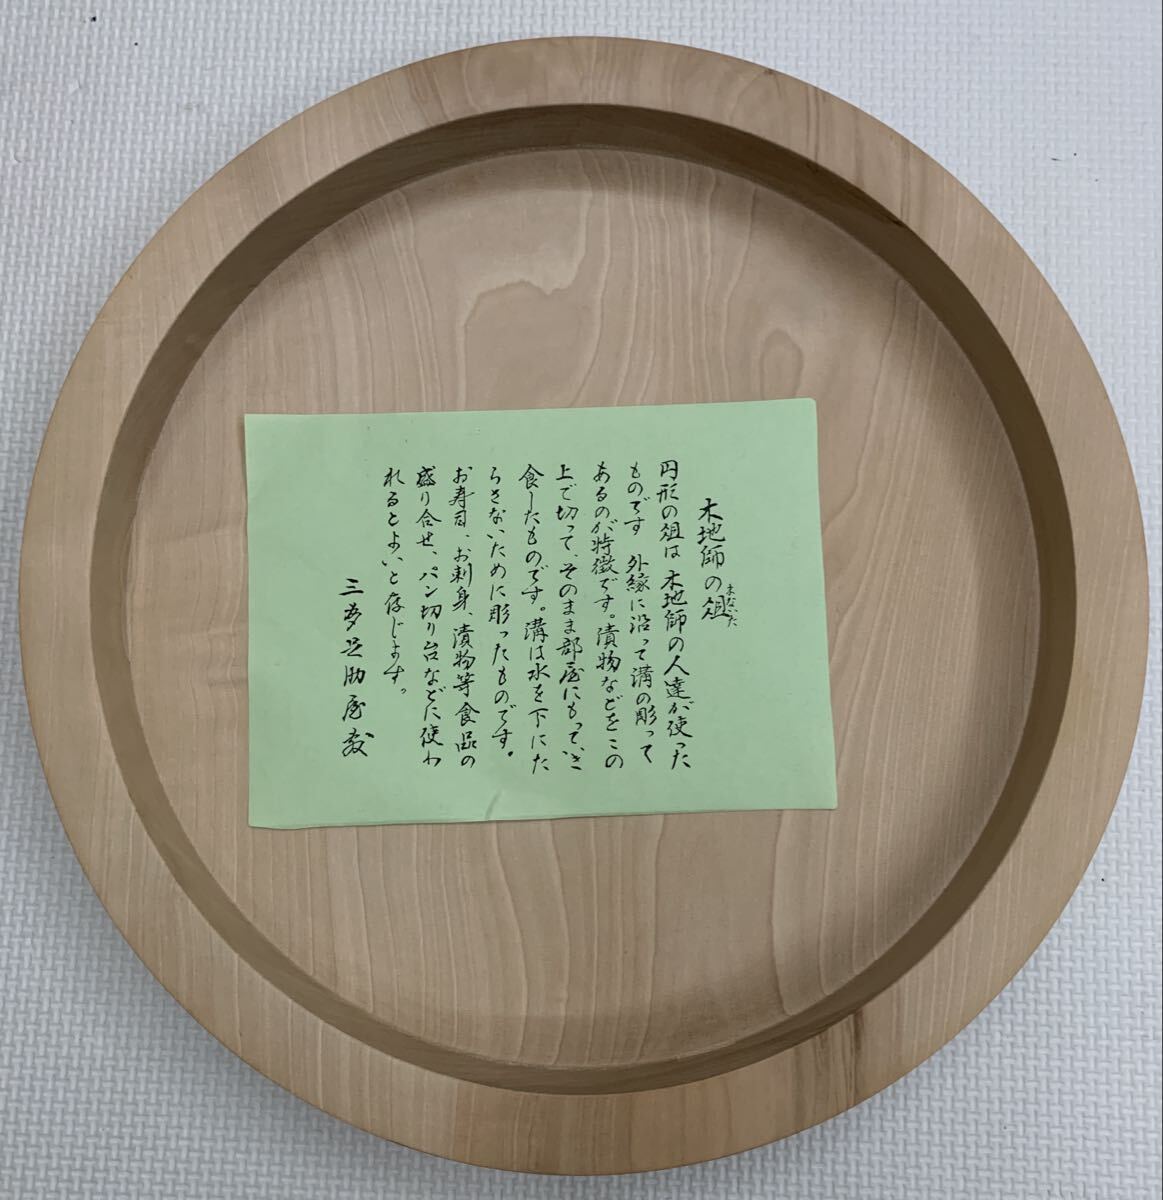 木地師の俎
まないた
円形の俎は木地師の人達が使った
ものです 外縁に沿って溝の彫って
あるのが特徴です。漬物などをこの
上で切って、そのまま部屋にもっていき
食したものです。溝は水を下にた
らさないために彫ったものです。
お寿司、お刺身、漬物等食品の
盛り合せ、パン切り台などに使わ
れるとよいと存じます。
三多之助屋敬